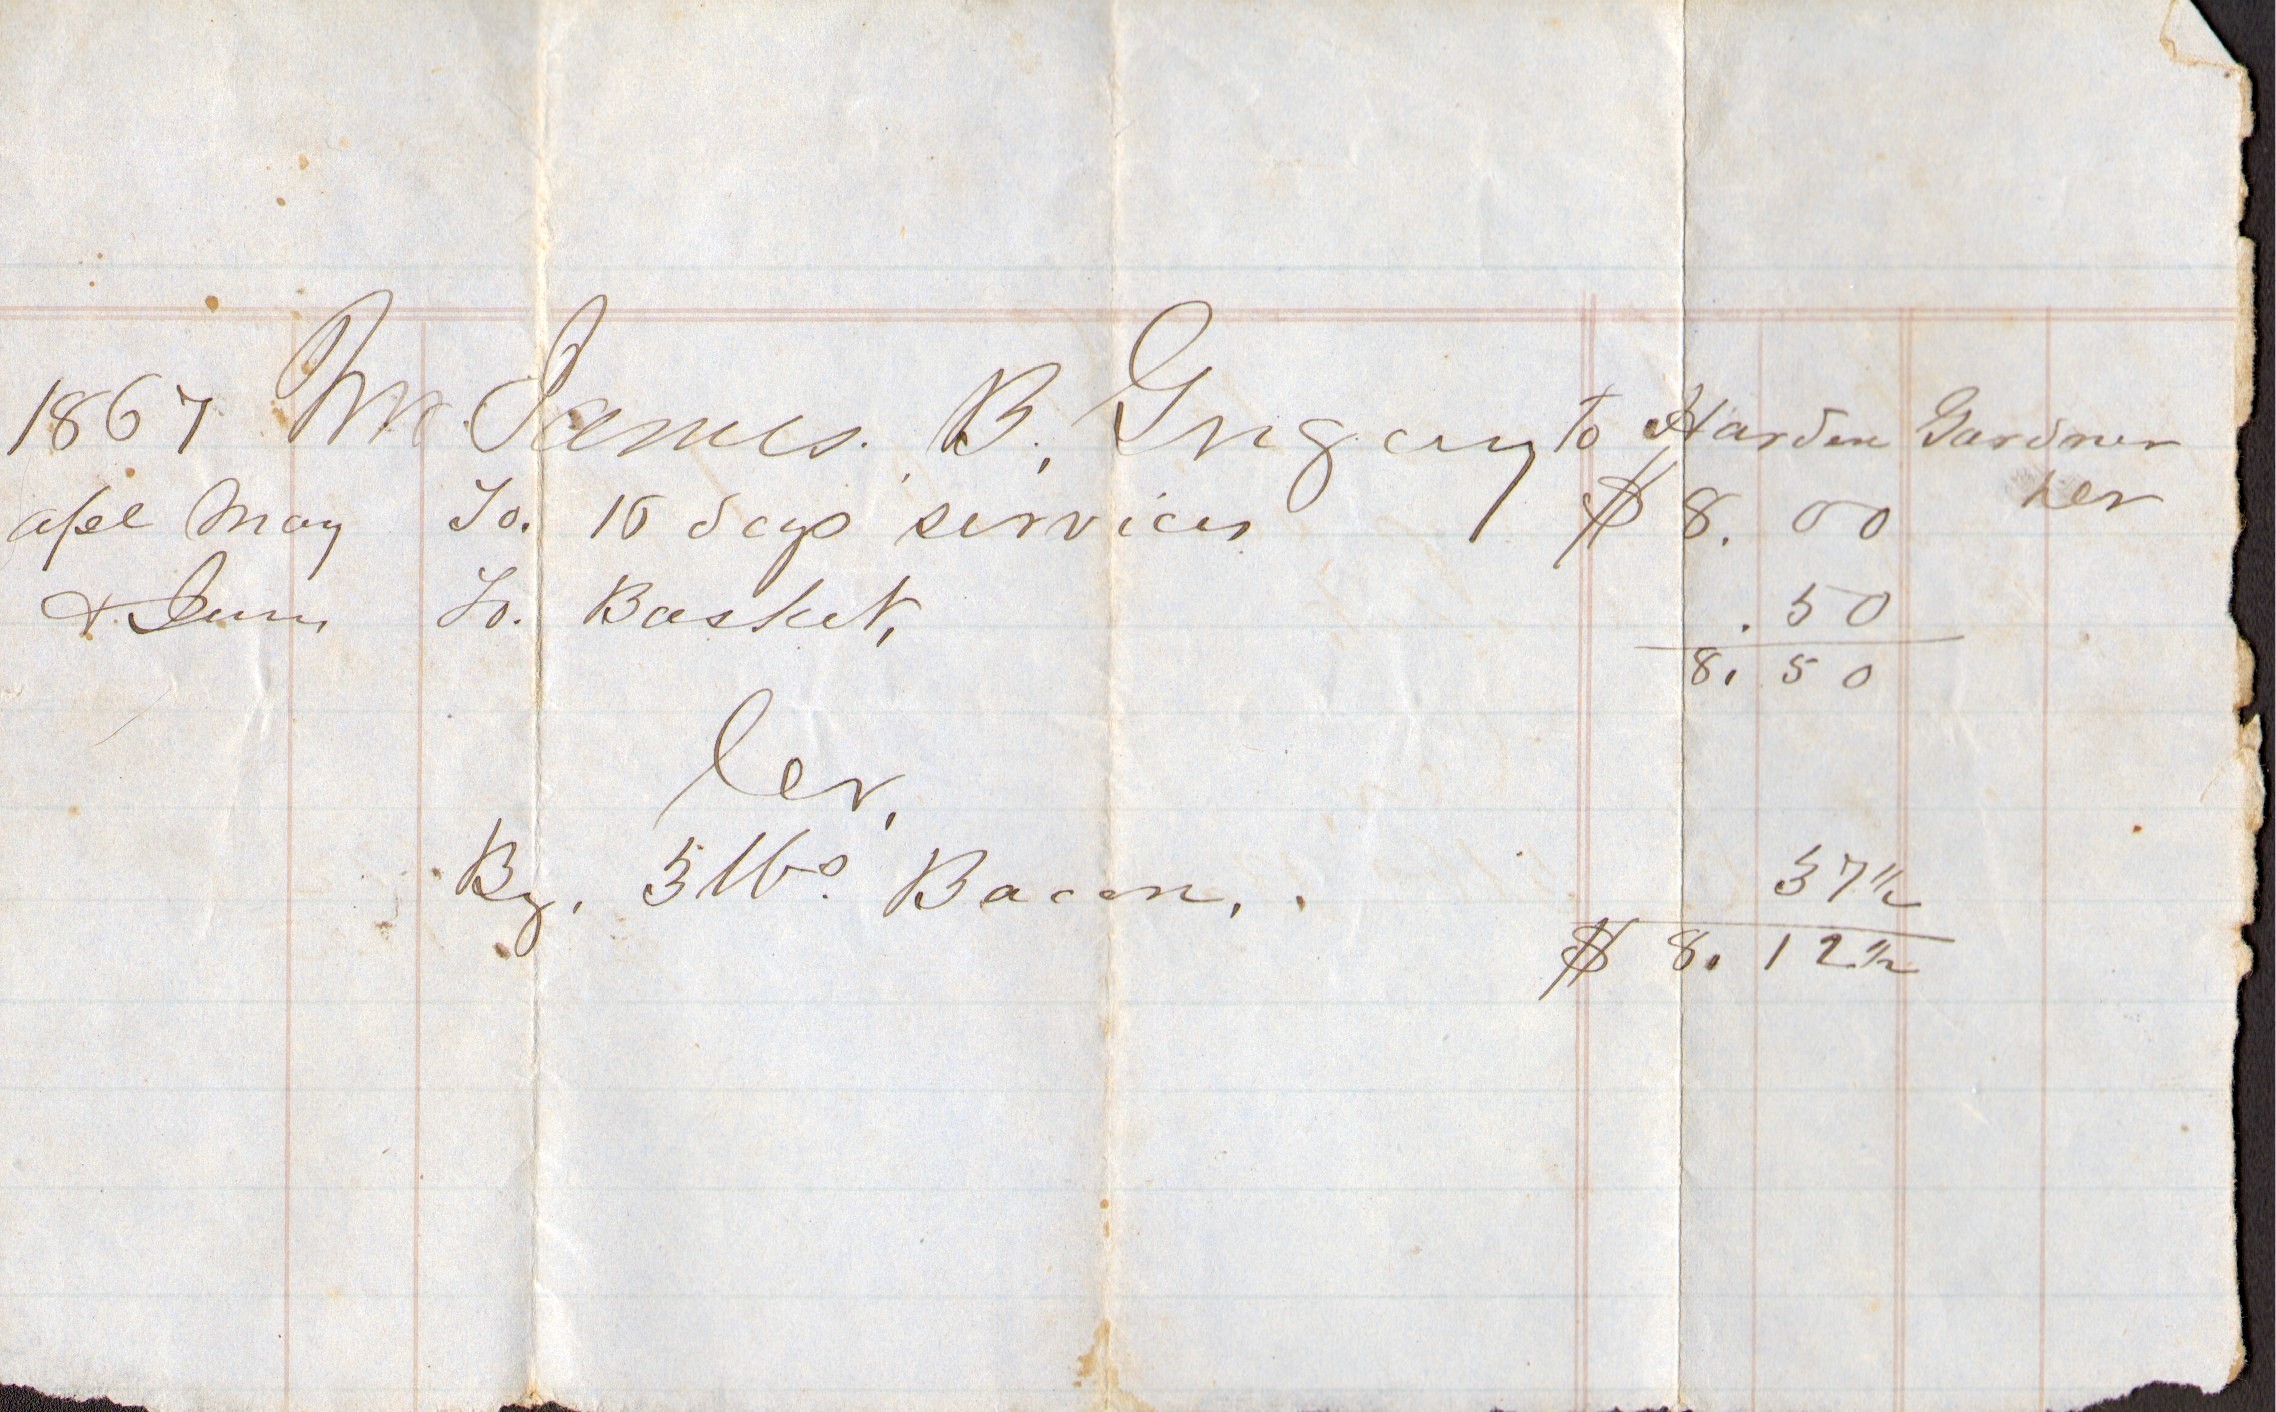 1867 Mr. James. B. Gregory to Harden Gardner
Apl May To. 10 days services $ 8. 00 Der
& June To. Basket, . 50
8. 50
Cr,
By. 5 lbs. Bacon, . 37 1/2
$ 8. 12 1/2